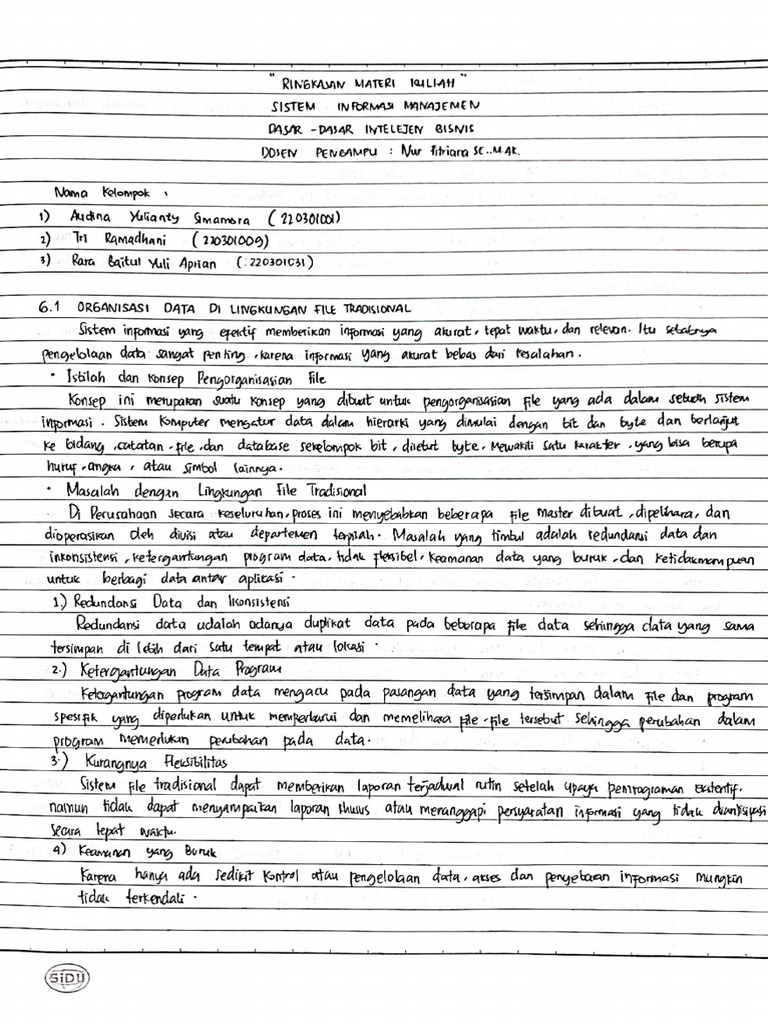 " RINGKASAN MATERI KULIAH "
SISTEM INFORMASI MANAJEMEN
DASAR - DASAR INTELEJEN BISNIS
DOSEN PENGAMPU : Nur Fitriana SE., M.AK.
Nama Kelompok :
1) Audina Yulianty Simamora ( 220301001)
2) Tri Ramadhani ( 220301009)
3) Rara Baitul Yuli Aprian ( 220301031)
6.1 ORGANISASI DATA DI LINGKUNGAN FILE TRADISIONAL
Sistem informasi yang efektif memberikan informasi yang akurat, tepat waktu, dan relevan. Itu sebabnya
pengelolaan data sangat penting, karena informasi yang akurat bebas dari kesalahan.
• Istilah dan Konsep Pengorganisasian File
Konsep ini merupakan suatu konsep yang dibuat untuk pengorganisasian file yang ada dalam sebuah sistem
informasi. Sistem Komputer mengatur data dalam hierarki yang dimulai dengan bit dan byte dan berlanjut
ke bidang, catatan, file, dan database sekelompok bit, disebut byte, mewakili satu karakter, yang bisa berupa
huruf, angka, atau simbol lainnya.
• Masalah dengan Lingkungan File Tradisional
Di Perusahaan secara keseluruhan, proses ini menyebabkan beberapa file master dibuat, dipelihara, dan
dioperasikan oleh divisi atau departemen terpisah. Masalah yang timbul adalah redundansi data dan
inkonsistensi, ketergantungan program data, tidak fleksibel, keamanan data yang buruk, dan ketidakmampuan
untuk berbagi data antar aplikasi.
1.) Redundansi Data dan Ikonsistensi
Redundansi data adalah adanya duplikat data pada beberapa file data sehingga data yang sama
tersimpan di lebih dari satu tempat atau lokasi.
2.) Ketergantungan Data Program
Ketergantungan program data mengacu pada pasangan data yang tersimpan dalam file dan program
spesifik yang diperlukan untuk memperbarui dan memelihara file-file tersebut sehingga perubahan dalam
program memerlukan perubahan pada data.
3.) Kurangnya Fleksibilitas
Sistem file tradisional dapat memberikan laporan terjadwal rutin setelah upaya pemrograman
namun tidak dapat menyampaikan laporan khusus atau menanggapi persyaratan informasi yang tidak diantisipasi
secara tepat waktu.
4) Keamanan yang Buruk
Karena hanya ada sedikit kontrol atau pengelolaan data, akses dan penyebaran informasi mungkin
tidak terkendali.
SiDU